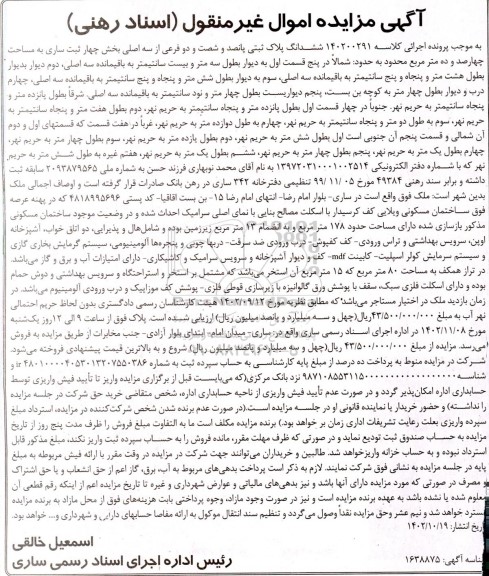 آگهی مزایده اموال غیر منقول (اسناد رهنی)
به موجب پرونده اجرائی کلاسه ۱۴۰۲۰۰۲۹۱ ششدانگ پلاک ثبتی پانصد و شصت و دو فرعی از سه اصلی بخش چهار ثبت ساری به مساحت
چهارصد و ده متر مربع محدود به حدود: شمالاً در پنج قسمت اول به دیوار بطول سه متر و بیست سانتیمتر به باقیمانده سه اصلی، دوم دیوار بدیوار
بطول هشت متر و پنجاه و پنج سانتیمتر به باقیمانده سه اصلی، سوم به دیوار بطول شش متر و پنجاه سانتیمتر به باقیمانده سه اصلی، چهارم
درب و دیوار بطول چهار متر به کوچه بن بست، پنجم دیواریست بطول چهار متر و نود سانتیمتر به باقیمانده سه اصلی. شرقاً بطول پانزده متر و
پنجاه سانتیمتر به حریم نهر. جنوباً در چهار قسمت اول بطول پانزده متر و پنجاه سانتیمتر به حریم نهر، دوم بطول هفت متر و پنجاه سانتیمتر به
حریم نهر، سوم به طول دو متر و پنجاه سانتیمتر به حریم نهر، چهارم به طول دوازده متر به حریم نهر، غرباً در هفت قسمت که قسمتهای اول و دوم
آن شمالی و قسمت پنجم آن جنوبی است اول بطول شش متر به حریم نهر، دوم بطول یازده متر به حریم نهر، سوم بطول چهار متر به حریم نهر،
چهارم بطول یک متر به حریم نهر، پنجم بطول چهار متر به حریم نهر، ششم بطول یک متر به حریم نهر، هفتم غیره به طول شش متر به حریم
نهر که با شماره دفتر الکترونیکی ۱۳۹۷۲۰۳۱۰۰۰۱۰۰۲۵۱۴ به نام آقای محمد نوبهاری فرزند حسن به شماره ملی ۲۰۹۳۸۷۹۵۶۵ سابقه ثبت
داشته و برابر سند رهنی ۴۹۳۸۴ مورخ ۹۹/۱۱/۰۵ تنظیمی دفترخانه ۳۴۲ ساری در رهن بانک صادرات قرار گرفته است و اوصاف اجمالی ملک
بدین شهر است: ملک فوق واقع است در ساری- بلوار امام رضا- انتهای امام رضا ۱۵- بن بست اقاقیا- کد پستی ۴۸۱۸۹۹۵۶۹۶ که در پهنه عرصه
فوق ساختمان مسکونی ویلایی کف کرسیدار با اسکلت مصالح بنایی با نمای اصلی سرامیک احداث شده و در وضعیت موجود ساختمان مسکونی
مذکور بازسازی شده دارای مساحت حدود ۱۷۸ متر مربع و به انضمام ۱۳ متر مربع زیرزمین بوده و شامل‌هال و پذیرایی، دو اتاق خواب، آشپزخانه
اوپن، سرویس بهداشتی و تراس ورودی- کف کفپوش- درب ورودی ضد سرقت- دربها چوبی و پنجره‌ها آلومینیومی، سیستم گرمایش بخاری گازی
و سیستم سرمایش کولر اسپلیت- کابینت mdf- کف و دیوار آشپزخانه و سرویس سرامیک و کاشیکاری- دارای امتیازات آب و برق و گاز می‌باشد.
در تراز همکف به مساحت ۸۰ متر مربع که ۱۵ متر مربع آن استخر می‌باشد که مشتمل بر استخر و استراحتگاه و سرویس بهداشتی و دوش حمام
بوده و دارای اسکلت فلزی سبک، سقف با پوشش ورق گالوانیزه با زیرسازی قوطی فلزی- پوشش کف موزاییک و درب ورودی آلومینیوم می‌باشد. در
زمان بازدید ملک در اختیار مستاجر می‌باشد؛ که مطابق نظریه مورخ ۱۴۰۲/۰۹/۱۲ هیئت کارشناسان رسمی دادگستری بدون لحاظ حریم احتمالی
نهر آب به مبلغ ۴۳/۵۰۰/۰۰۰/۰۰۰ ریال(چهل و سه میلیارد و پانصد میلیون ریال) ارزیابی شده است. پلاک فوق از ساعت ۹ الی ۱۲روز یک‌شنبه
مورخ ۱۴۰۲/۱۱/۰۸ در اداره اجرای اسناد رسمی ساری واقع در ساری- میدان امام- ابتدای بلوار آزادی- جنب مخابرات از طریق مزایده به فروش
می‌رسد. مزایده از مبلغ ۴۳/۵۰۰/۰۰۰/۰۰۰ ریال(چهل و سه میلیارد و پانصد میلیون ریال) شروع و به بالاترین قیمت پیشنهادی فروخته می‌شود.
شرکت در مزایده منوط به پرداخت ده درصد از مبلغ پایه کارشناسی به حساب سپرده ثبت به شماره
حسابداری اداره امکان‌پذیر گردد و در صورت عدم تأیید فیش واریزی از ناحیه حسابداری اداره، شخص متقاضی خرید حق شرکت در جلسه مزایده
را نداشته) و حضور خریدار یا نماینده قانونی او در جلسه مزایده است.(در صورت عدم برنده شدن شخص شرکت‌کننده در مزایده، استرداد مبلغ
سپرده واریزی بعلت رعایت تشریفات اداری زمان بر خواهد بود.) برنده مزایده مکلف است ما به التفاوت مبلغ فروش را ظرف مدت پنج روز از تاریخ
مزایده به حساب صندوق ثبت تودیع نماید و در صورتی که ظرف مهلت مقرر، مانده فروش را به حساب سپرده ثبت واریز نکند، مبلغ مذکور قابل
استرداد نبوده و به حساب خزانه واریزخواهد شد. طالبین و خریداران می‌توانند جهت شرکت در مزایده در وقت مقرر با ارائه فیش مربوطه به مبلغ
پایه در جلسه مزایده به نشانی فوق شرکت نمایند. لازم به ذکر است پرداخت بدهی‌های مربوط به آب، برق، گاز اعم از حق انشعاب و یا حق اشتراک
و مصرف در صورتی که مورد مزایده دارای آنها باشد و نیز بدهی‌های مالیاتی و عوارض شهرداری و غیره تا تاریخ مزایده اعم از اینکه رقم قطعی آن
معلوم شده یا نشده باشد به عهده برنده مزایده است و نیز در صورت وجود مازاد، وجوه پرداختی بابت هزینه‌های فوق از محل مازاد به برنده مزایده
مسترد خواهد شد و نیم عشر وحق مزایده نقداً وصول می‌گردد و تنظیم سند انتقال موکول به ارائه مفاصا حسابهای دارایی و شهرداری و... خواهد بود.
تاریخ انتشار: ۱۴۰۲/۱۰/۱۹
اسمعیل خالقی
رئیس اداره اجرای اسناد رسمی ساری
شناسه آگهی: ۱۶۳۸۸۷۵